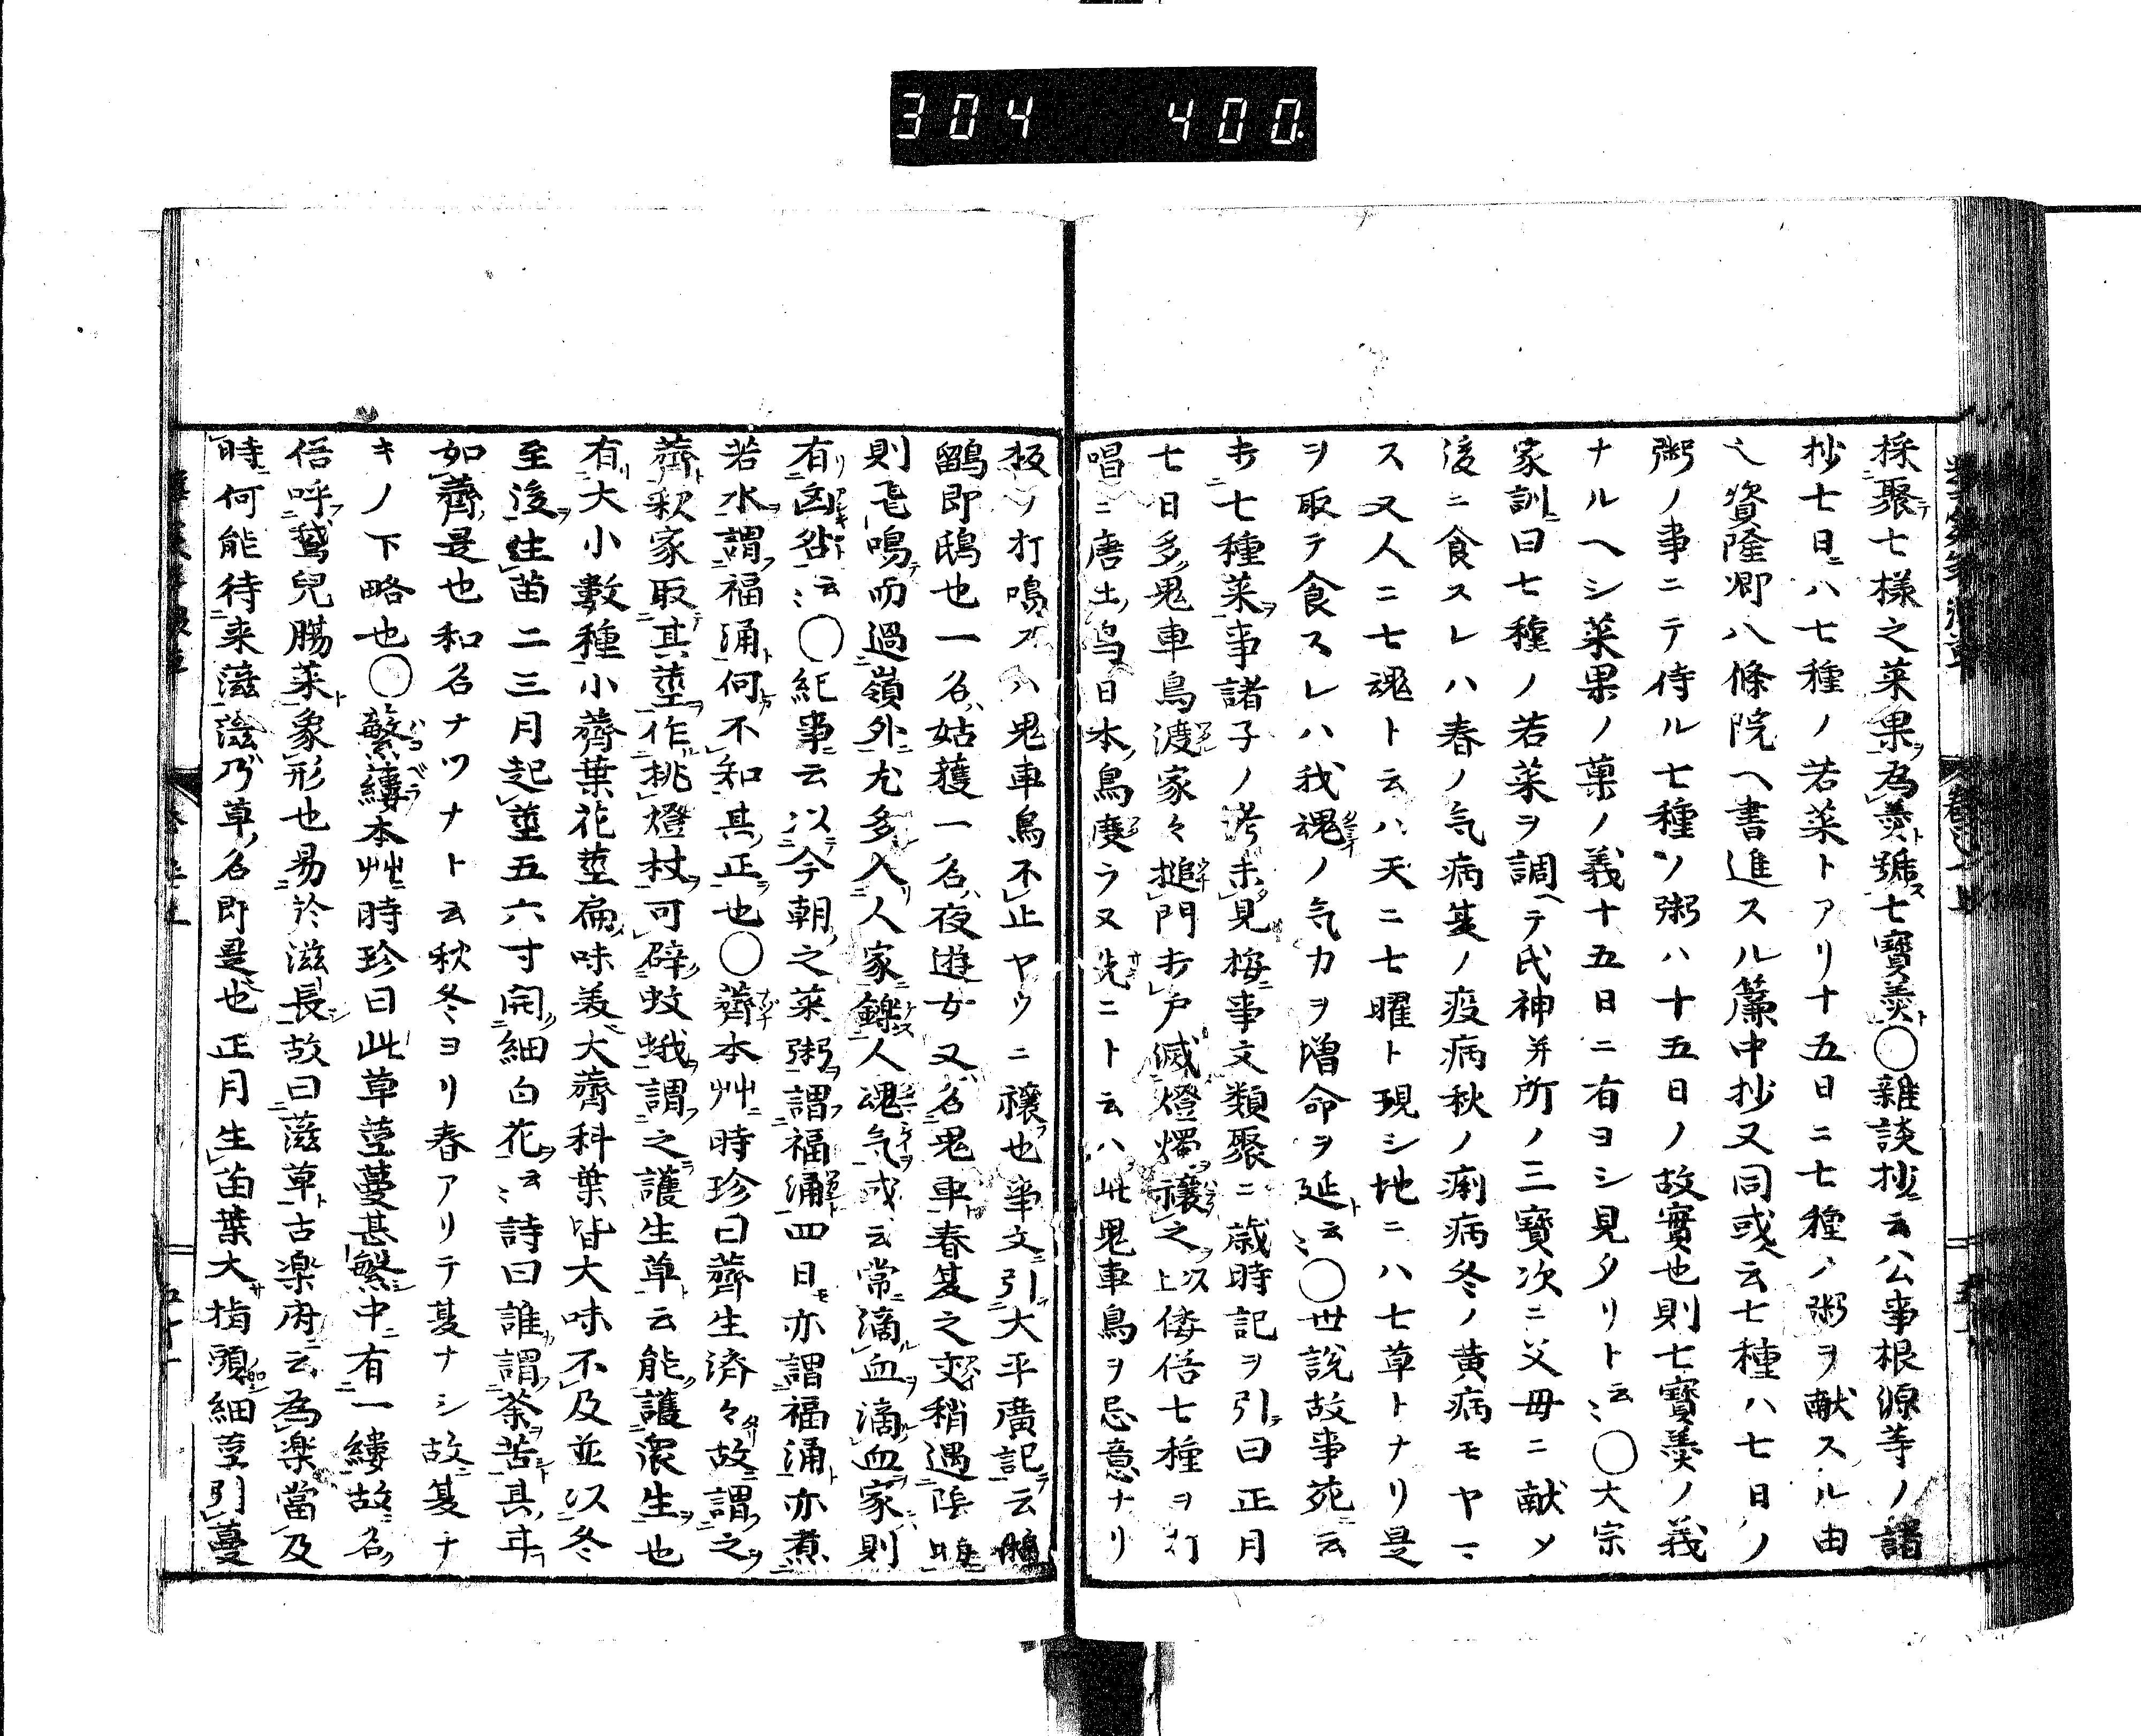 304 400.
採聚テ七様之菜果ヲ為羮ト號ス七寶羮ト○雜談抄ニ云公事根源等ノ諸
抄七日ニハ七種ノ若菜トアリ十五日ニ七種ノ粥ヲ献スル由
資隆卿八條院ヘ書進スル簾中抄又同或云七種ハ七日ノ
粥ノ事ニテ侍ル七種ソ粥ハ十五日ノ故實也則七寶羮ノ義
ナルヘシ菜果ノ菓ノ義十五日ニ有ヨシ見タリト云々○大宗
家訓ニ曰七種ノ若菜ヲ調ヘテ氏神并所ノ三寶次ニ父母ニ献メ
後ニ食スレハ春ノ気病夏ノ疫病秋ノ痢病冬ノ黄病モヤマ
ス又人ニ七魂ト云ハ天ニ七曜ト現シ地ニハ七草トナリ是
ヲ取テ食スレハ我魂ノ気力ヲ増命ヲ延ト云々○世説故事苑ニ云
七種菜ヲ事諸子ノ考未見按ニ事文類聚ニ歳時記ヲ引テ曰正月
七日多鬼車鳥渡家々搥門ヲ戸滅燈燭ヲ禳之ヲ以上倭俗七種ヲ打
唱ニ唐土ノ鳥日本ノ鳥度ラヌ先ニト云ハ此鬼車鳥ヲ忌意ナリ
板ヲ打鳴スハ鬼車鳥不止ヤウニ禳也事文ニ引大平廣記テ云
鶹即鴟也一名姑獲一名夜遊女又名鬼車春夏之交稍遇陰晦
則飛鳴テ而過嶺外ニ尤多入人家ニ鑠人魂気或云常滴血ヲ滴血家則
有凶咎云々○紀事ニ云以今朝之菜粥ヲ謂福涌四日モ亦謂福涌ト亦煮
若水ヲ謂福涌ト何不知其正也○薺本艸ニ時珍曰薺生済々故謂之
薺釈家取其莖作挑燈杖ヲ可辟蚊蛾ヲ謂之護生草ト云能護衆生ヲ也
有大小數種小薺葉花莖扁味美大薺科葉皆大味不及並以冬
至後生苗二三月起莖五六寸開細白花云々詩曰誰謂荼苦其甘
如薺是也和名ナツナト云秋冬ヨリ春アリテ夏ナシ故ニ夏ナ
キノ下略也○蘩縷本艸ニ時珍曰此草莖蔓甚繁中有一縷故名
俗呼鵞兒腸菜ト象形也易於滋長故曰滋草ト古楽府ニ云為楽當及
時何能待来滋滋乃草名即是也正月生苗葉大指頭細莖引蔓